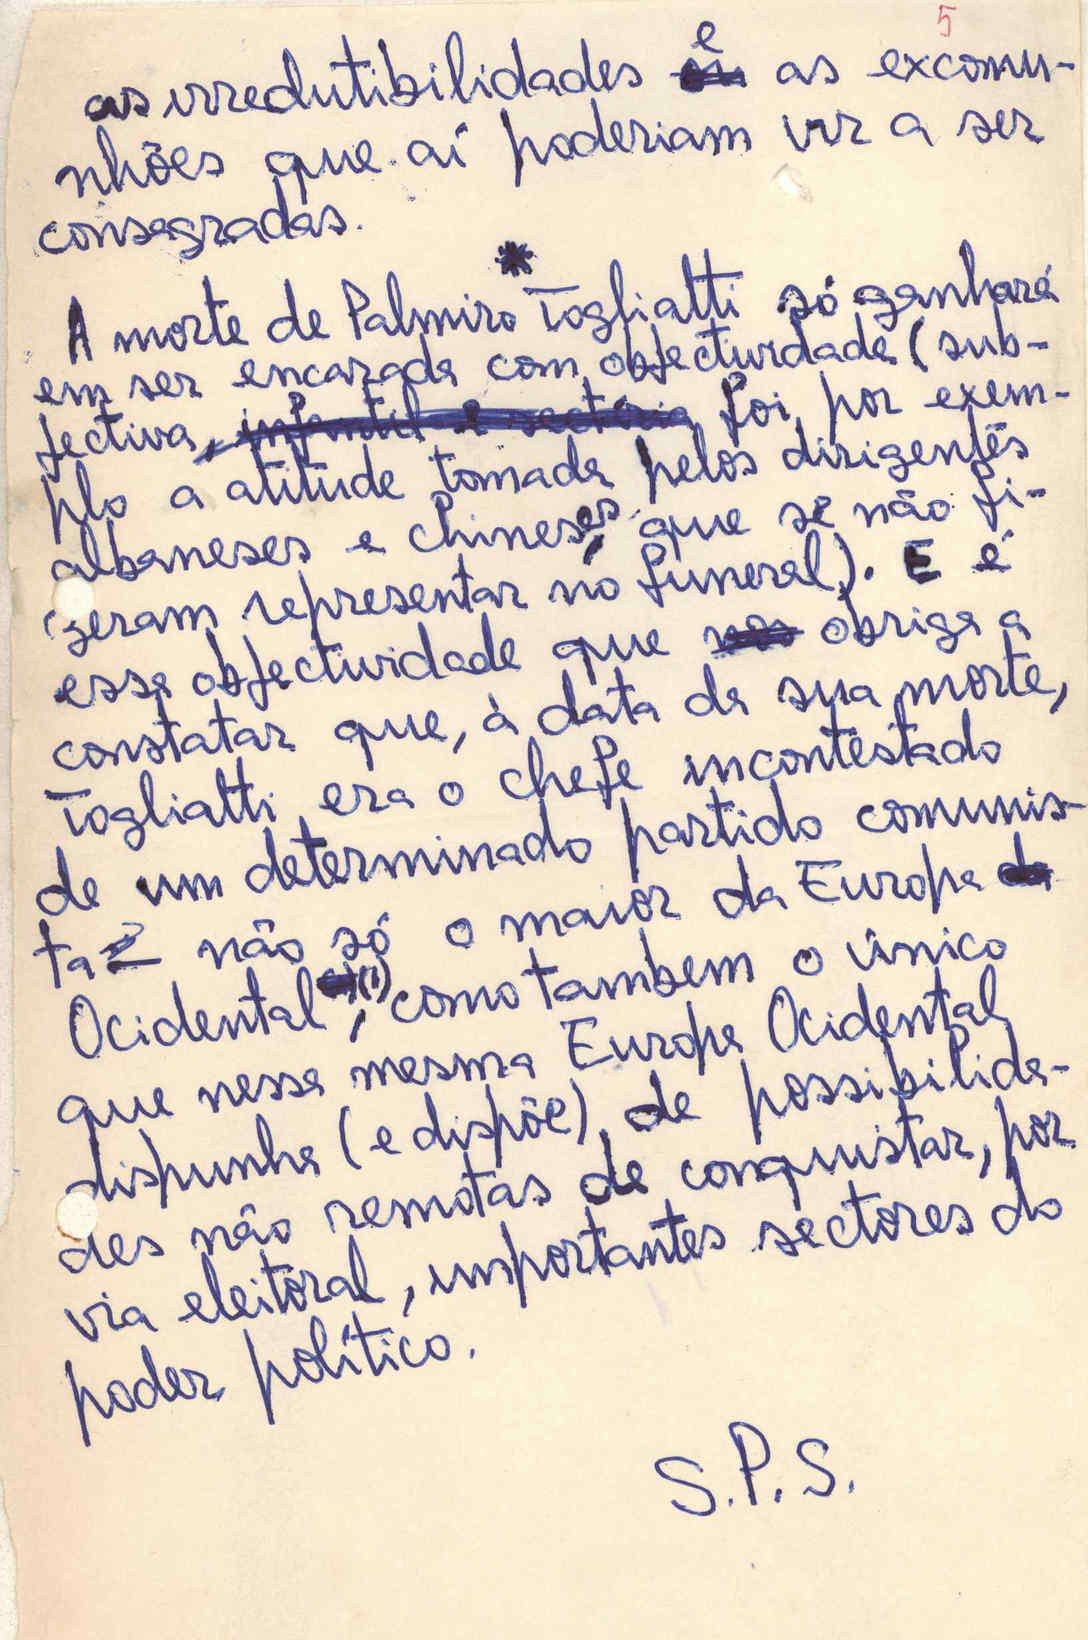 5
as irredutibilidades e as excomu-
nhões que aí poderiam vir a ser
consagradas.
*
A morte de Palmiro Togliatti só ganhará
em ser encarada com objectividade (sub-
jectiva, infantil e sectária foi, por exem-
plo a atitude tomada pelos dirigentes
albaneses e chineses, que se não fi-
zeram representar no funeral). E é
essa objectividade que nos obriga a
constatar que, à data da sua morte,
Togliatti era o chefe incontestado
de um determinado partido comunis-
ta – não só o maior da Europa da
Ocidental (1), como tambem o único
que nessa mesma Europa Ocidental
dispunha (e dispõe) de possibilida-
des não remotas de conquistar, por
via eleitoral, importantes sectores do
poder político.
S.P.S.